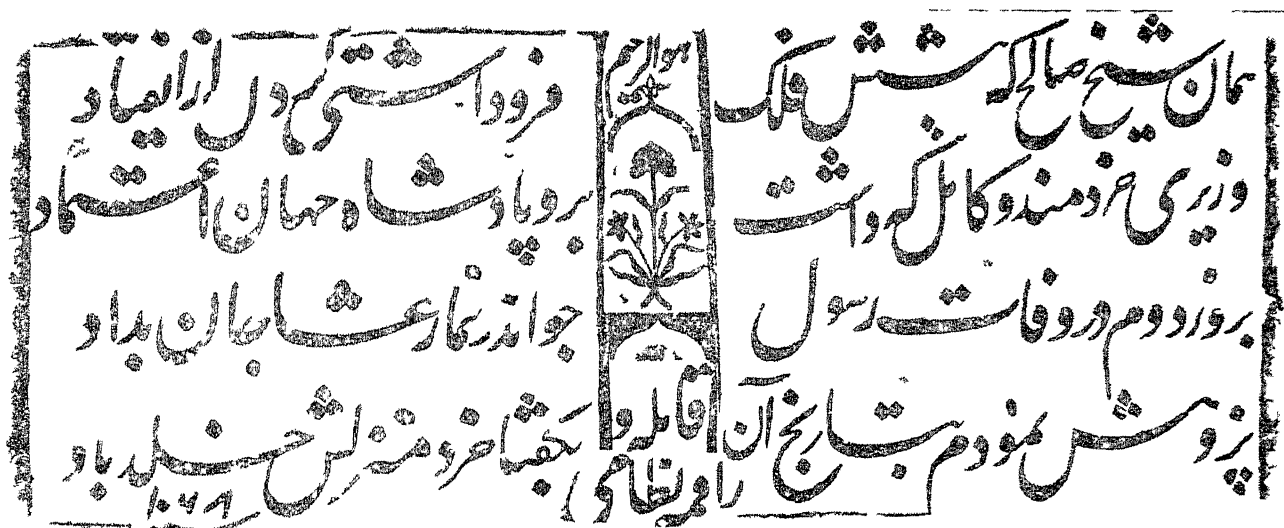 همان شیخ صالح که شش فلک
فرو داشتی دل از انقیاد
وزیری خردمند و کامل که داشت
برو پادشاه جهان اعتماد
بروز دوم در وفات رسول
چو اندر نماز عشا جان بداد
پژوهش نمودم بتاریخ آن
بگفتا خرد منزلش خلد باد
۱۰۶۸
هوالرحیم
قایله و
راقمه نظامی